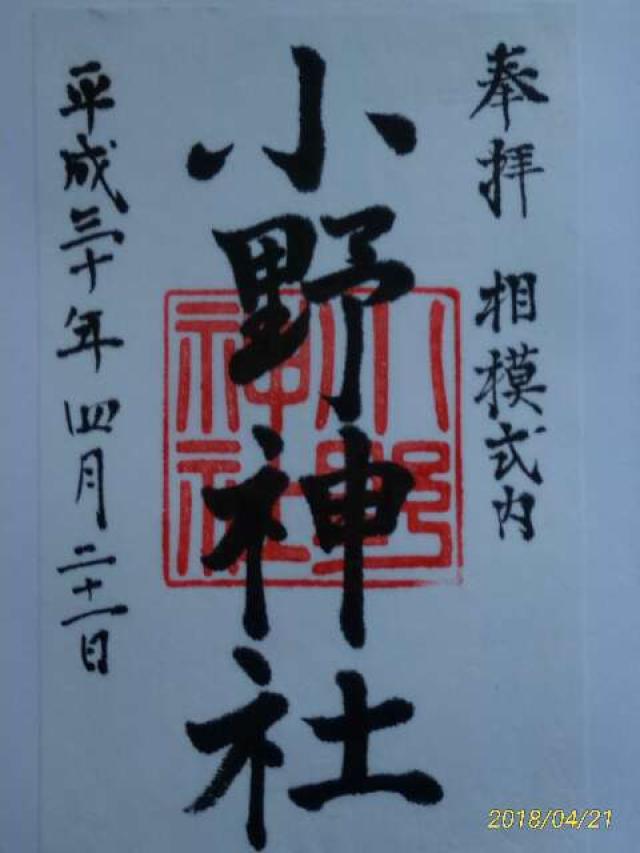 奉拝 相模式内
小野神社
小野神社
平成三十年四月二十一日
2018/04/21